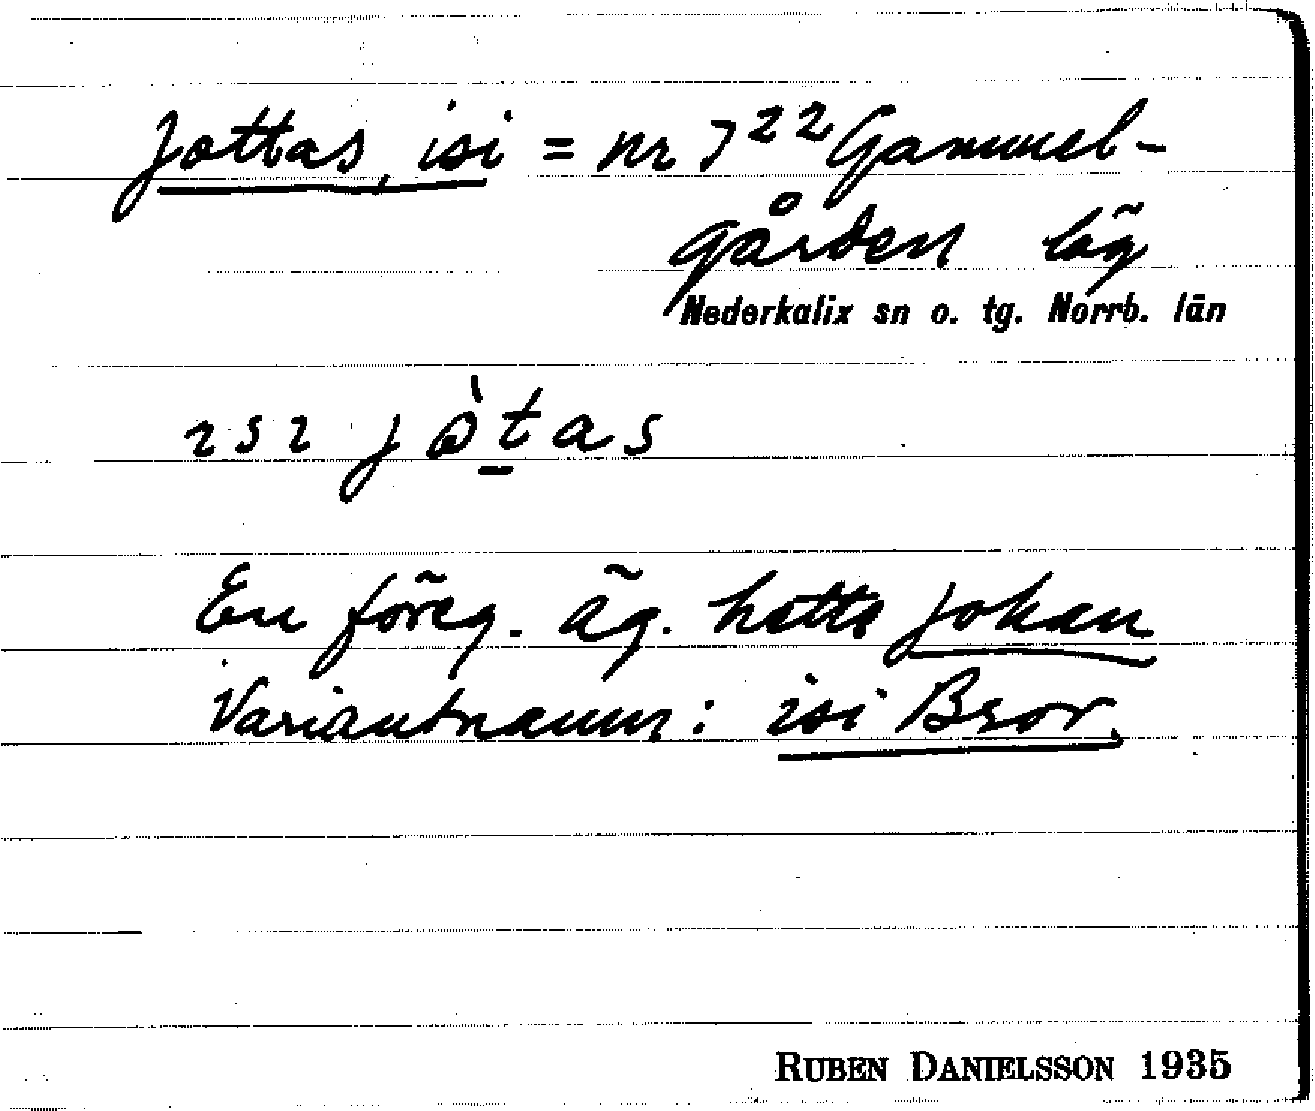 Jottas, isi = nr 7²² Gammel-
gården läg
Nederkalix sn o. tg. Norrb. län
ɩsɩ jòtas
En föreg. äg. hette Johan
Variantnamn: isi Bror.
RUBEN DANIELSSON 1935